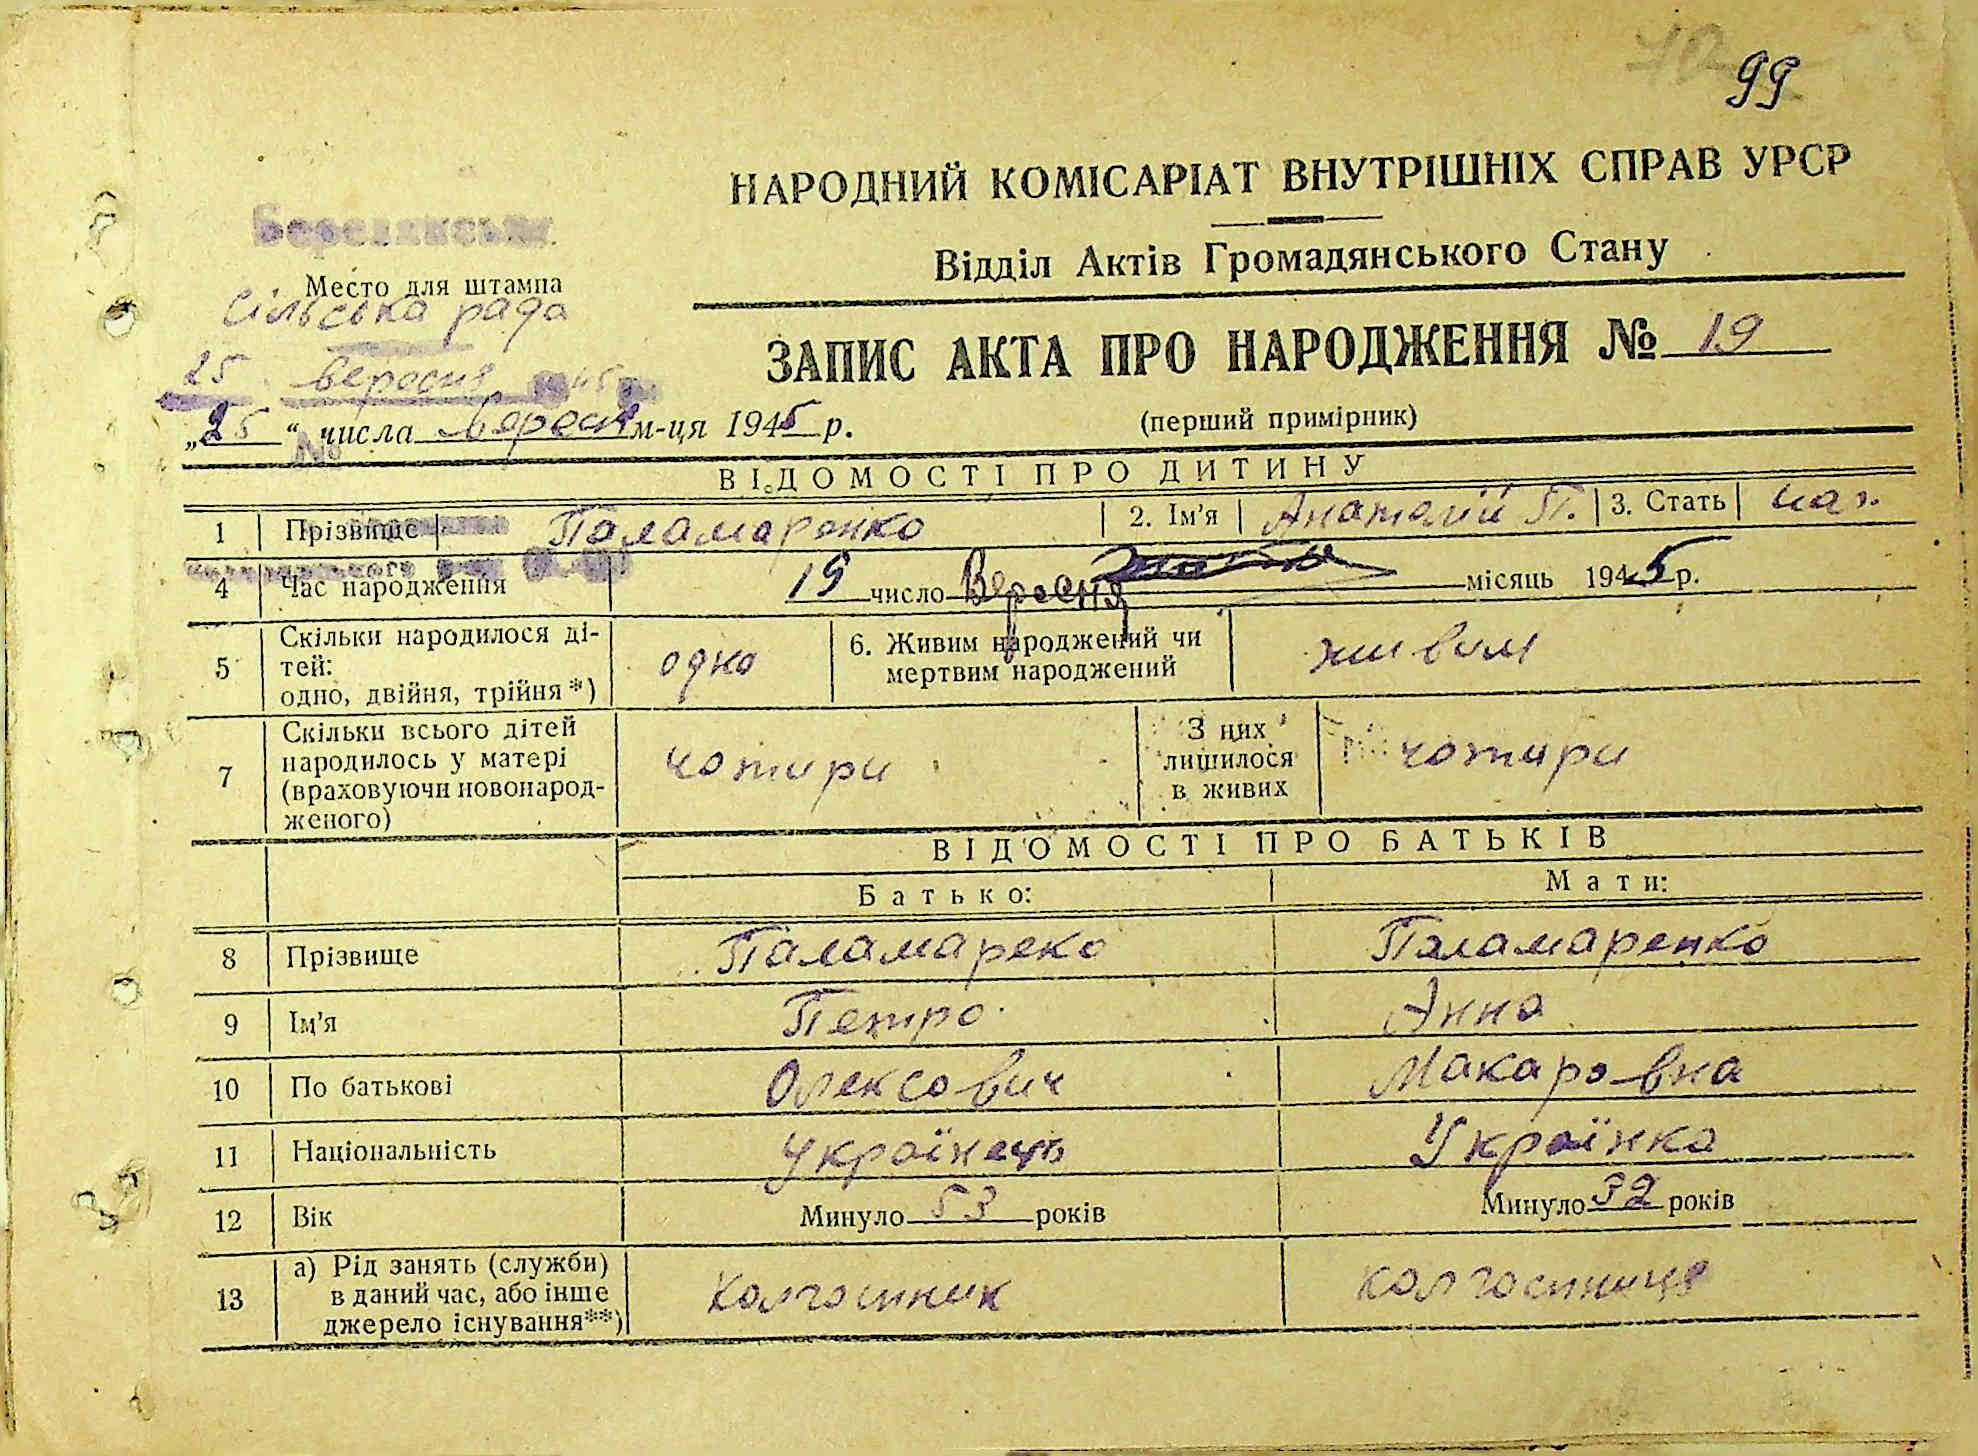 99
НАРОДНИЙ КОМІСАРІАТ ВНУТРІШНІХ СПРАВ УРСР
Відділ Актів Громадянського Стану
Место для штампа
Сільська рада
25 вересня 1945 р.
ЗАПИС АКТА ПРО НАРОДЖЕННЯ № 19
(перший примірник)
„25“ числа Вересня м-ця 1945 р.
№
ВІДОМОСТІ ПРО ДИТИНУ
1 Прізвище Паламаренко 2. Ім'я Анатолій П. 3. Стать чол.
4 Час народження 19 число Вересня місяць 1945 р.
5 Скільки народилося ді-
тей:
одно, двійня, трійня*) одно 6. Живим народжений чи
мертвим народжений живим
7 Скільки всього дітей
народилось у матері
(враховуючи новонарод-
женого) чотири З них
лишилося
в живих чотири
ВІДОМОСТІ ПРО БАТЬКІВ
Батько: Мати:
8 Прізвище Паламареко Паламаренко
9 Ім'я Петро Анна
10 По батькові Олексович Макаровна
11 Національність Українець Українка
12 Вік Минуло 53 років Минуло 32 років
13 а) Рід занять (служби)
в даний час, або інше
джерело існування**) Колгоспник колгоспниця